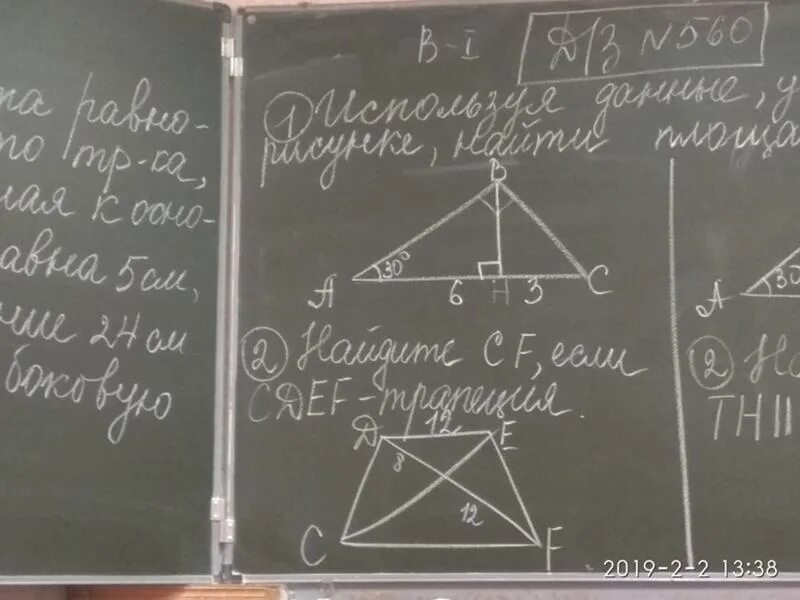 равно-
тр-ка,
к одно-
5 см,
24 см
боковую
В-I
Д/З №560
① Используя данные,
рисунке, найти
B
A
30°
6
H
3
C
② Найдите CF, если
CDEF-трапеция.
D
12
E
8
12
C
F
A
30
②
TH ||
2019-2-2 13:38